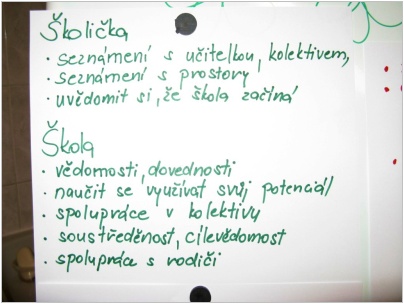 Školička
· seznámení s učitelkou, kolektivem,
· seznámení s prostory
· uvědomit si, že škola začíná
Škola
· vědomosti, dovednosti
· naučit se využívat svůj potenciál
· spolupráce v kolektivy
· soustředěnost, cílevědomost
· spolupráce s rodiči